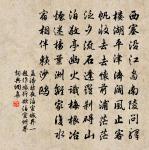 西塞沿江島南陵問驛
樓湖平津濟闊風止客
帆收去去懷前浦茫茫
泛夕流石逢羅剎礙山
泊敬亭幽火識梅根冶
煙迷楊葉洲離家復水
宿相伴賴沙鷗
孟浩然夜泊宣城界一
題作旅行欲泊宣州界